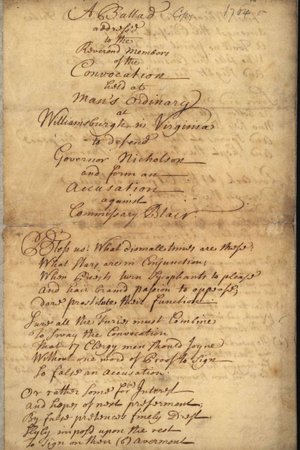 A Ballad
Copy
1704
address'd
to the
Reverend Members
of the
Convocation
held at
Man's Ordinary
at
Williamsburgh in Virginia
to defend
Governor Nicholson
and form an
Accusation
against
Commissary Blair
Bless us! What dismall times are these;
What Stars are in Conjunction;
When Priests turn Sycophants to please
And hair brain'd passion to appease;
Dare prostitute their Function.
Sure all the Furies must Combine
To Sway the Convocation
That 17 Clergy men should Joyne
Without one word of Proof to Sign
So false an Accusation
Or rather some for Interest
and hopes of next preferment;
By false pretences finely Drest
Slyly imposd upon the rest
to Sign on their averment